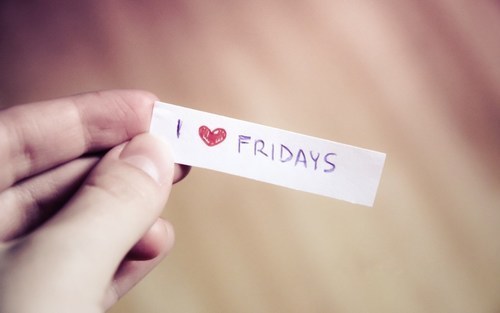 I ❤ FRIDAYS